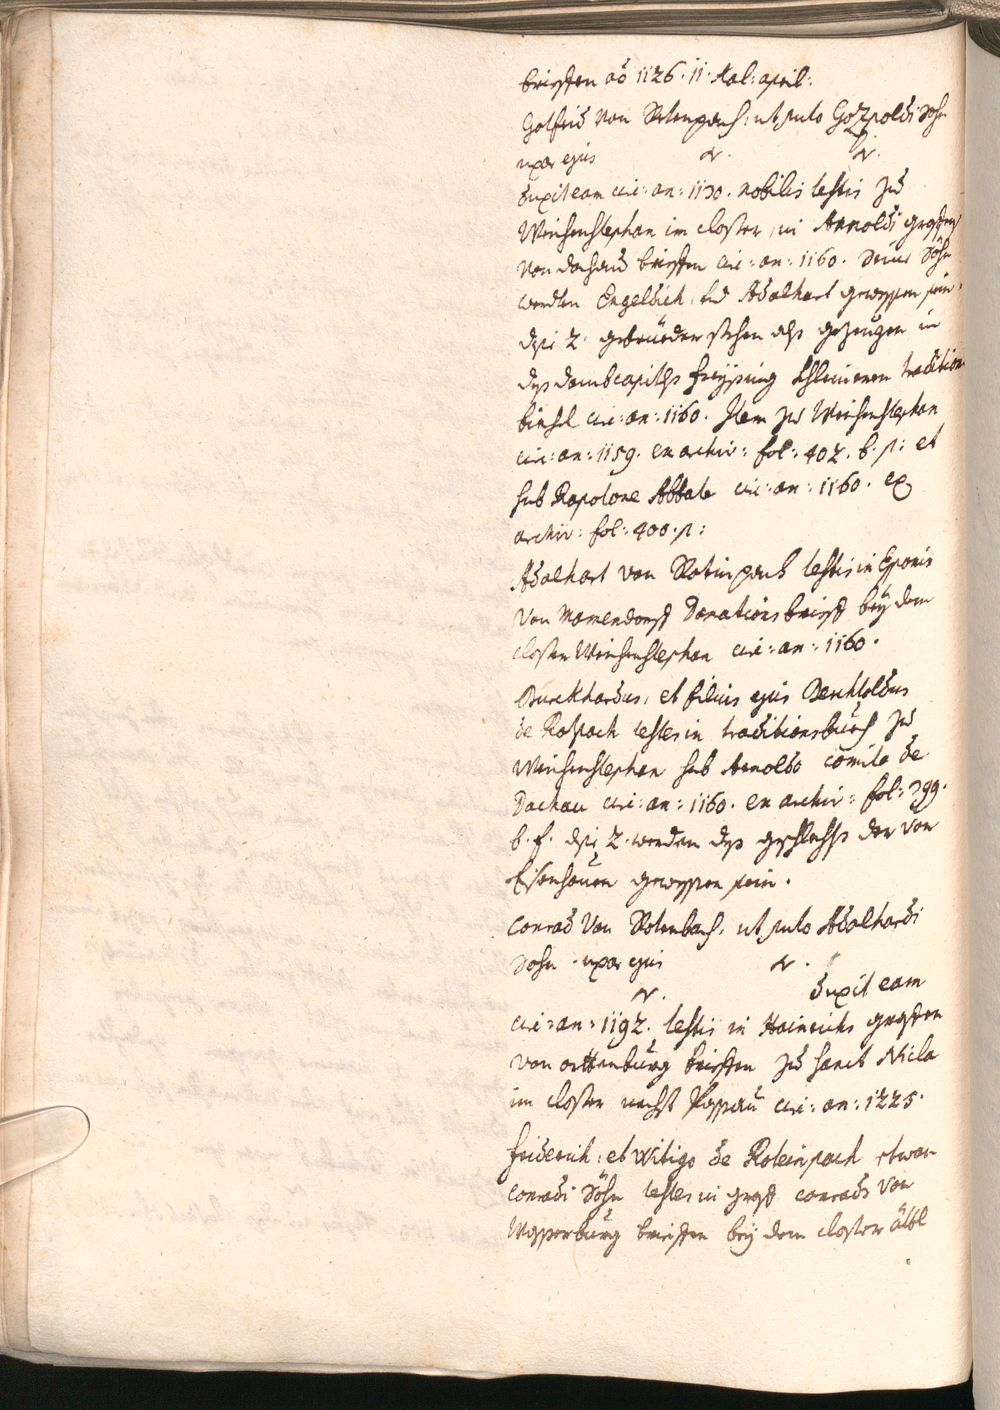 brieffen aõ 1126. 11. Kal: april:
Gotfrid von Rotenpach, ut puto Gozpoldi Sohn
uxor ejus N. N.
duxit eam circ: an: 1130. nobilis testis zu
Weichenstephan im closter, in Arnoldi graffens
von dachau brieffen circ: an: 1160. Seine Söhn
werdten Engeldich, und Adalhart gewessen sein.
dise 2. gebrüeder stehen als gezeugen in
dess dombcapitls Freysing kleineren tradition
biechl circ: an: 1160. Item zu Weichenstephan
circ: an: 1159. ex archiv: fol: 402. b. p: et
sub Rapotone Abbate circ: an: 1160. ex
archiv: fol: 400. p:
Adalhart von Rotinpach testis in Epponis
von Mamendorff Donationsbrieff bey dem
closter Weichenstephan circ: an: 1160.
Burckhardus, et filius ejus Berchtoldus
de Rospach testes in traditionsbuch zu
Weichenstephan sub Arnoldo comite de
Dachau circ: an: 1160. ex archiv: fol: 399.
b. f. dise 2. werden dess geschlechts der von
Eisenhoven gewessen sein.
Conrad von Rotenbach, ut puto Adalhardi
Sohn. uxor ejus N.
N. duxit eam
circ: an: 1192. testis in Hainrichs graffen
von orttenburg brieffen zu sanct Nicla
im closter nechst Passau circ: an: 1225.
Friderich, et Witigo de Roteinpach etwan
Conradi Söhn testes in graff Conrads von
Wasserburg brieffen bey dem closter ältl